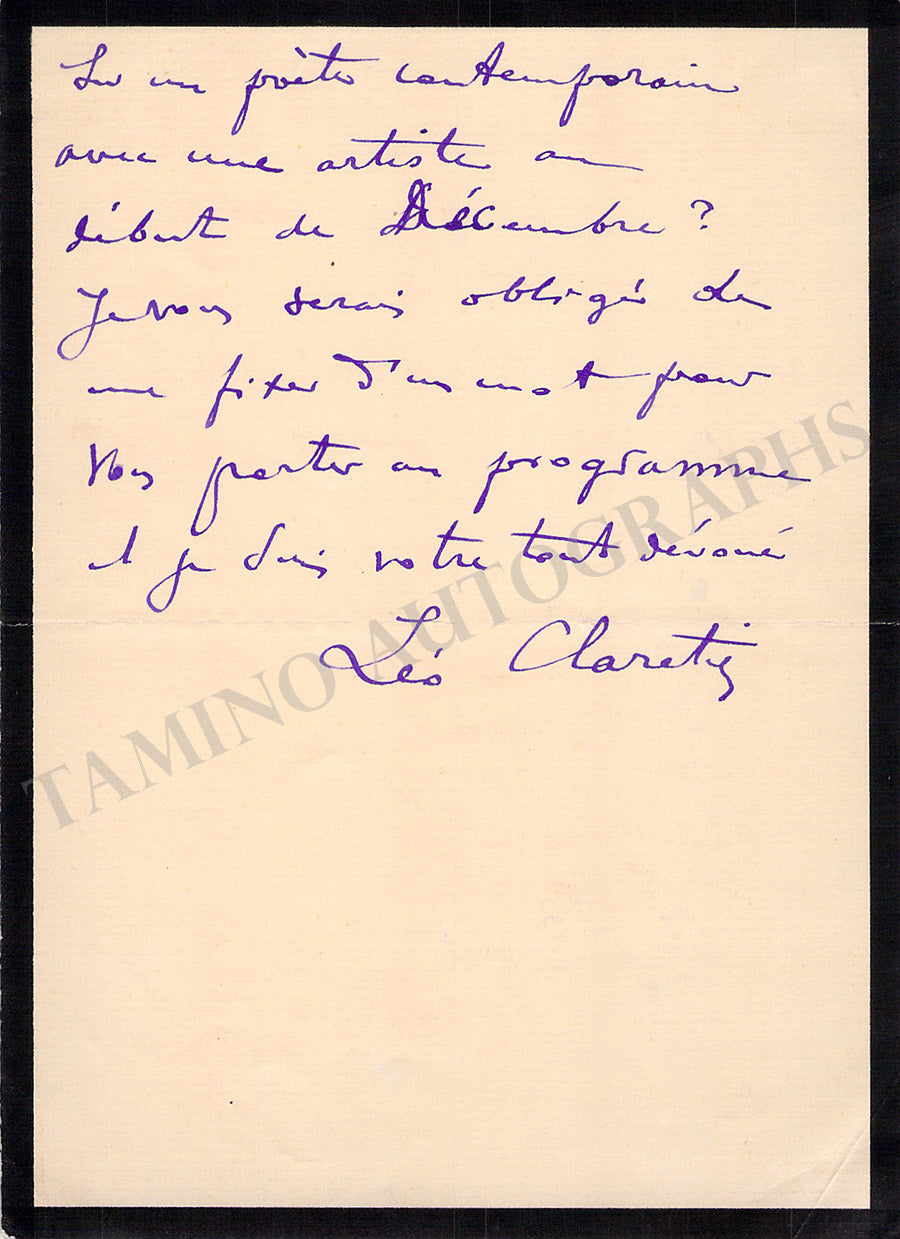 Sur un poète contemporain
avec une artiste au
début de Décembre ?
Je vous serais obligé de
me fixer d'un mot pour
vous porter au programme
et je suis votre tout dévoué
Léo Claretie
TAMINO AUTOGRAPHS